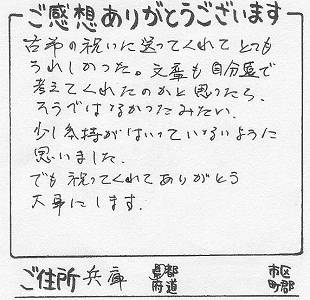 ご感想ありがとうございます
古希の祝いに送ってくれてとても
うれしかった。文章も自分達で
考えてくれたのかと思ったら、
そうではなかったみたい。
少し気持がはいっていないように
思いました。
でも祝ってくれてありがとう
大事にします。
ご住所 兵庫 県都府道 市区町郡